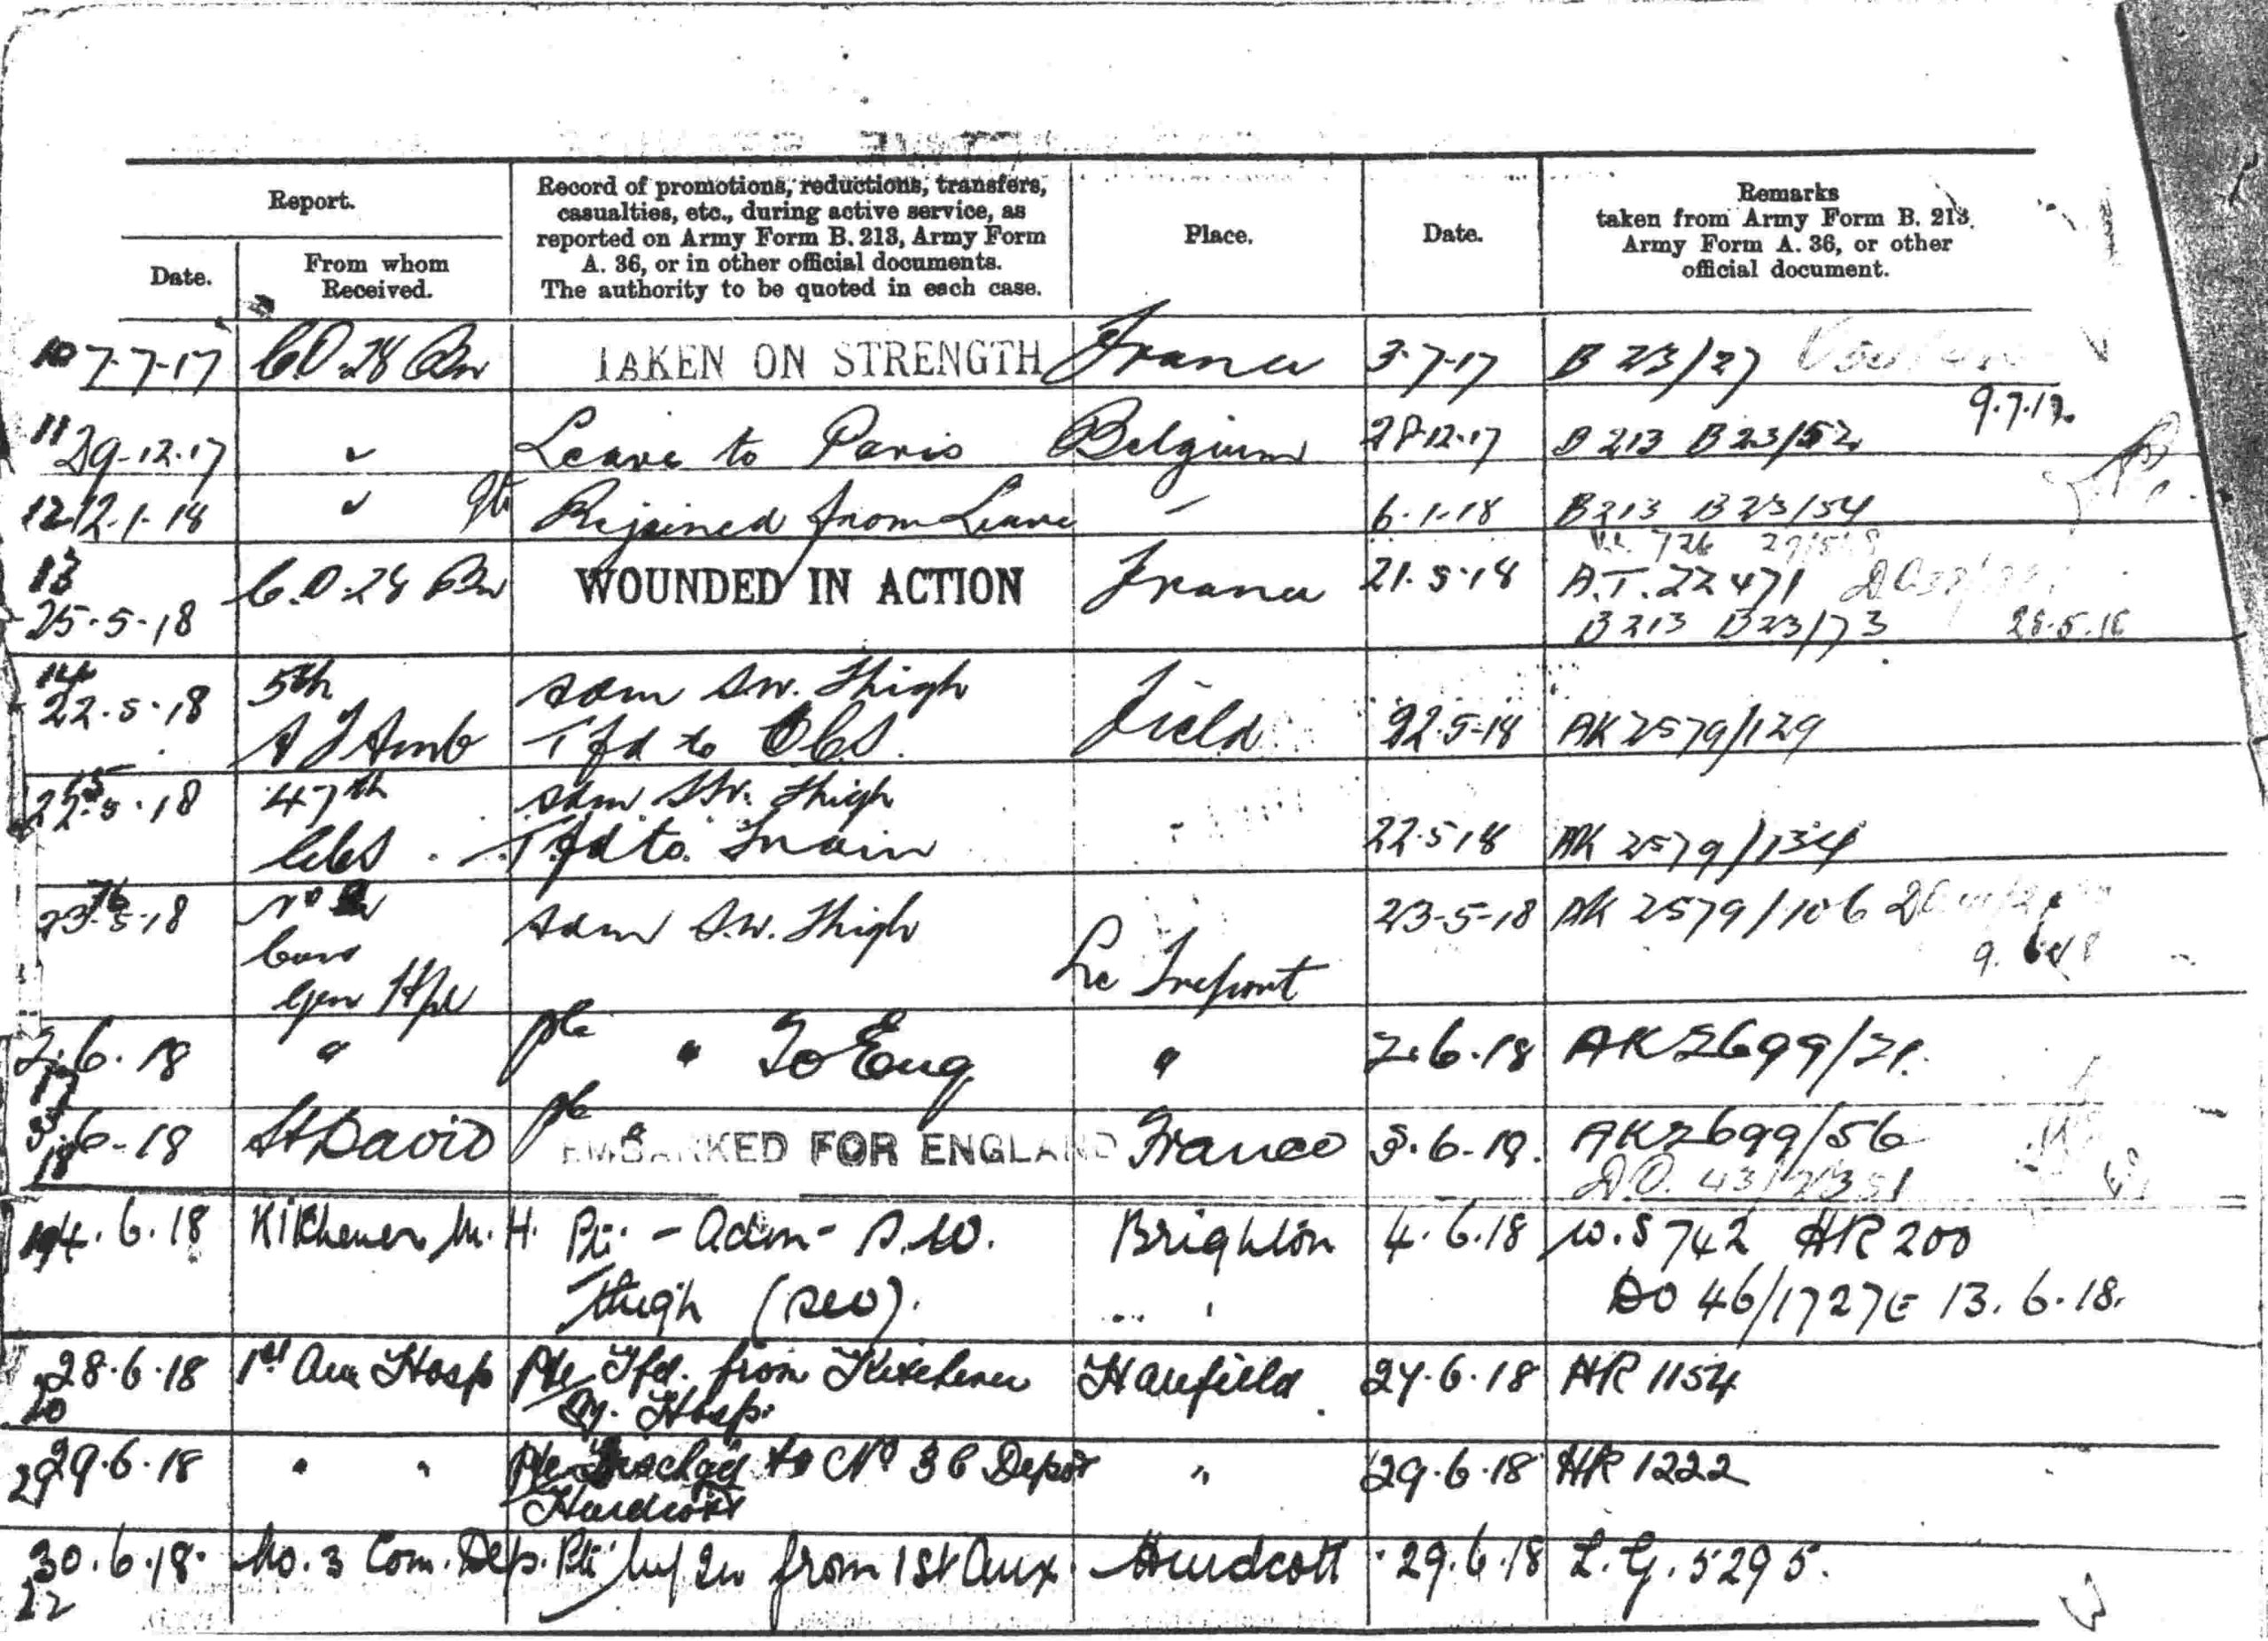 Report.
Date.
From whom Received.
Record of promotions, reductions, transfers,
casualties, etc., during active service, as
reported on Army Form B. 213, Army Form
A. 36, or in other official documents.
The authority to be quoted in each case.
Place.
Date.
Remarks
taken from Army Form B. 213,
Army Form A. 36, or other
official document.
10 7-7-17 C.O. 28 Bn TAKEN ON STRENGTH France 3-7-17 B 23/27
9.7.17
11 29-12-17 " Leave to Paris Belgium 28-12-17 B213 B23/52
12 12-1-18 " Rejoined from Leave " 6-1-18 B213 B23/54
13
25-5-18 C.O. 28 Bn WOUNDED IN ACTION France 21-5-18 A.T. 22471
B213 B23/73 28.5.18
14
22-5-18 5th Adm S.W. Thigh
A F Amb Tfd to CCS. Field 22-5-18 AK 2579/129
15
22-5-18 47th Adm S.W. Thigh
CCS Tfd to Train 22-5-18 AK 2579/134
16
23-5-18 No 2 Adm S.W. Thigh 23-5-18 AK 2579/106
Can
Gen Hpl Le Treport
9.6.18
2.6.18 " pte " To Eng " 2.6.18 AK 2699/21.
17
3.6-18 St David pte " EMBARKED FOR ENGLAND France 3.6-18. AK2699/56
18
19 4.6.18 Kitchener M.H. Pte - adm - S.W. Brighton 4.6.18 W.S 742 HR 200
Thigh (sev). " DO 46/1727E 13.6.18.
28.6.18 1st Aux Hosp Pte Tfd. from Kitchener Harefield 27.6.18 HR 1154
20 M. Hosp.
29.6.18 " " Pte Dischgd to No 3 C Depot " 29.6.18 HR 1222
Hurdcott
30.6.18. No. 3 Com. Dep. Pte M/In from 1st Aux. Hurdcott 29.6.18 L.G. 5295.
22